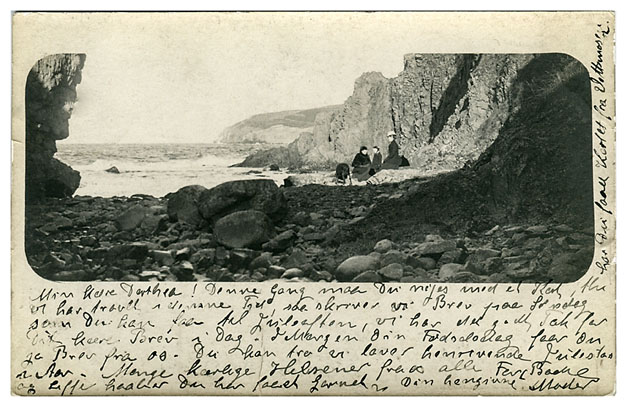 Min kære Dorthea! Denne Gang maa Du nøjes med et Kort, Thi
vi har travlt i denne Tid, saa skriver vi Brev paa Søndag
som Du kan faa til Juleaften, vi har det godt, Tak for
dit kære Brev i Dag. I Morgen din Fødselsdag faar Du
jo Brev fra os. Du kan tro vi laver henrivende Julestas
i Aar. Mange kærlige Hilsener fra os alle
og haaber Du har faaet Garnet Din hengivne Moder
har Du faaet Kortet fra